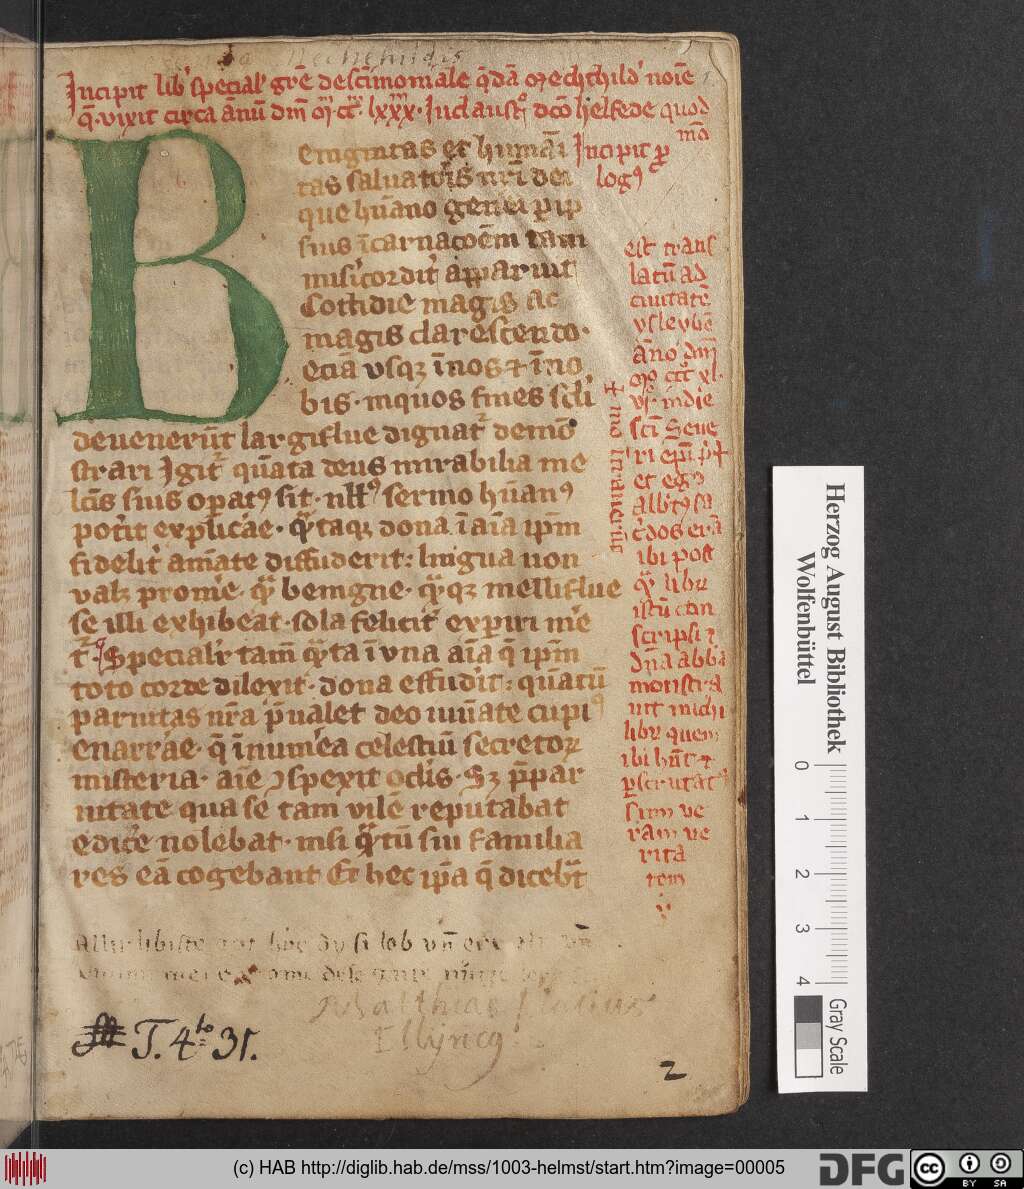 Incipit lib' special' grē de sc̄imoniale q̄dā mechthild' noīe
q̄ vixit circa ānū dm̄ m̊ cc̊ lxxx̊ in claustr̊ d̄co helfede quod
mō
Incipit p̲
log⁹
Benignitas et humāi
tas saluatoris nr̄i dei
que hūano generi p̲ ip
sius īcarnacōem tam
misi'cordit' apparuit
Cottidie magis ac
magis clarescendo·
eciā vsqꝫ ī nos ⁊ ī no
bis· in quos fines sc̄li
deuenerūt largiflue dignat' demō
strari Igit' quāta deus mirabilia me
lc̄is suis op̲at⁹ sit· null⁹ sermo hūan⁹
pot'it explicāe· Qͣtaqꝫ dona ī aīa ip̄m
fidelit' amāte diffuderit: lingua non
valꝫ prome'· qͣ benigne· qͣqꝫ melliflue
se illi exhibeat· sola felicit' exp̲iri me
t̄· Speciali' tam̄ qͣta ī vna aīa q̄ ip̄m
toto corde dilexit· dona effudit: quātū
paruitas nr̄a p̄ualet deo iuuāte cupi⁹
enarrāe· q̄ ī num'a celestiū secretoꝝ
misteria· aīe ꝯspexit oc̄lis· Sꝫ p̄ p̲ar
uitate qua se tam vilē reputabat
edice' nolebat· nisi qͣtū sui familia
res eā cogebant Et hec ip̄a q̄ diceb̄t
est trans
latū ad
ciuitatē
vsleybē
āno dm̄
m̊ ccc̊ xl
vi· in die
sc̄i Seue
ri ep̄i
et ego
albt⁹ sa
c'dos erā
ibi post
qͣ libr̄
istū con
scripsi ⁊
dn̄a abba
monstra
uit michi
libr̄ quem
ibi hn̄t ⁊
p̲scrutat⁹
sum ve
ram ve
rita
tem
Matthias Flacius
Illyricg
T. 4to 31.
2
Herzog August Bibliothek
Wolfenbüttel
0 1 2 3 4
Gray Scale
(c) HAB http://diglib.hab.de/mss/1003-helmst/start.htm?image=00005
DFG
cc BY SA